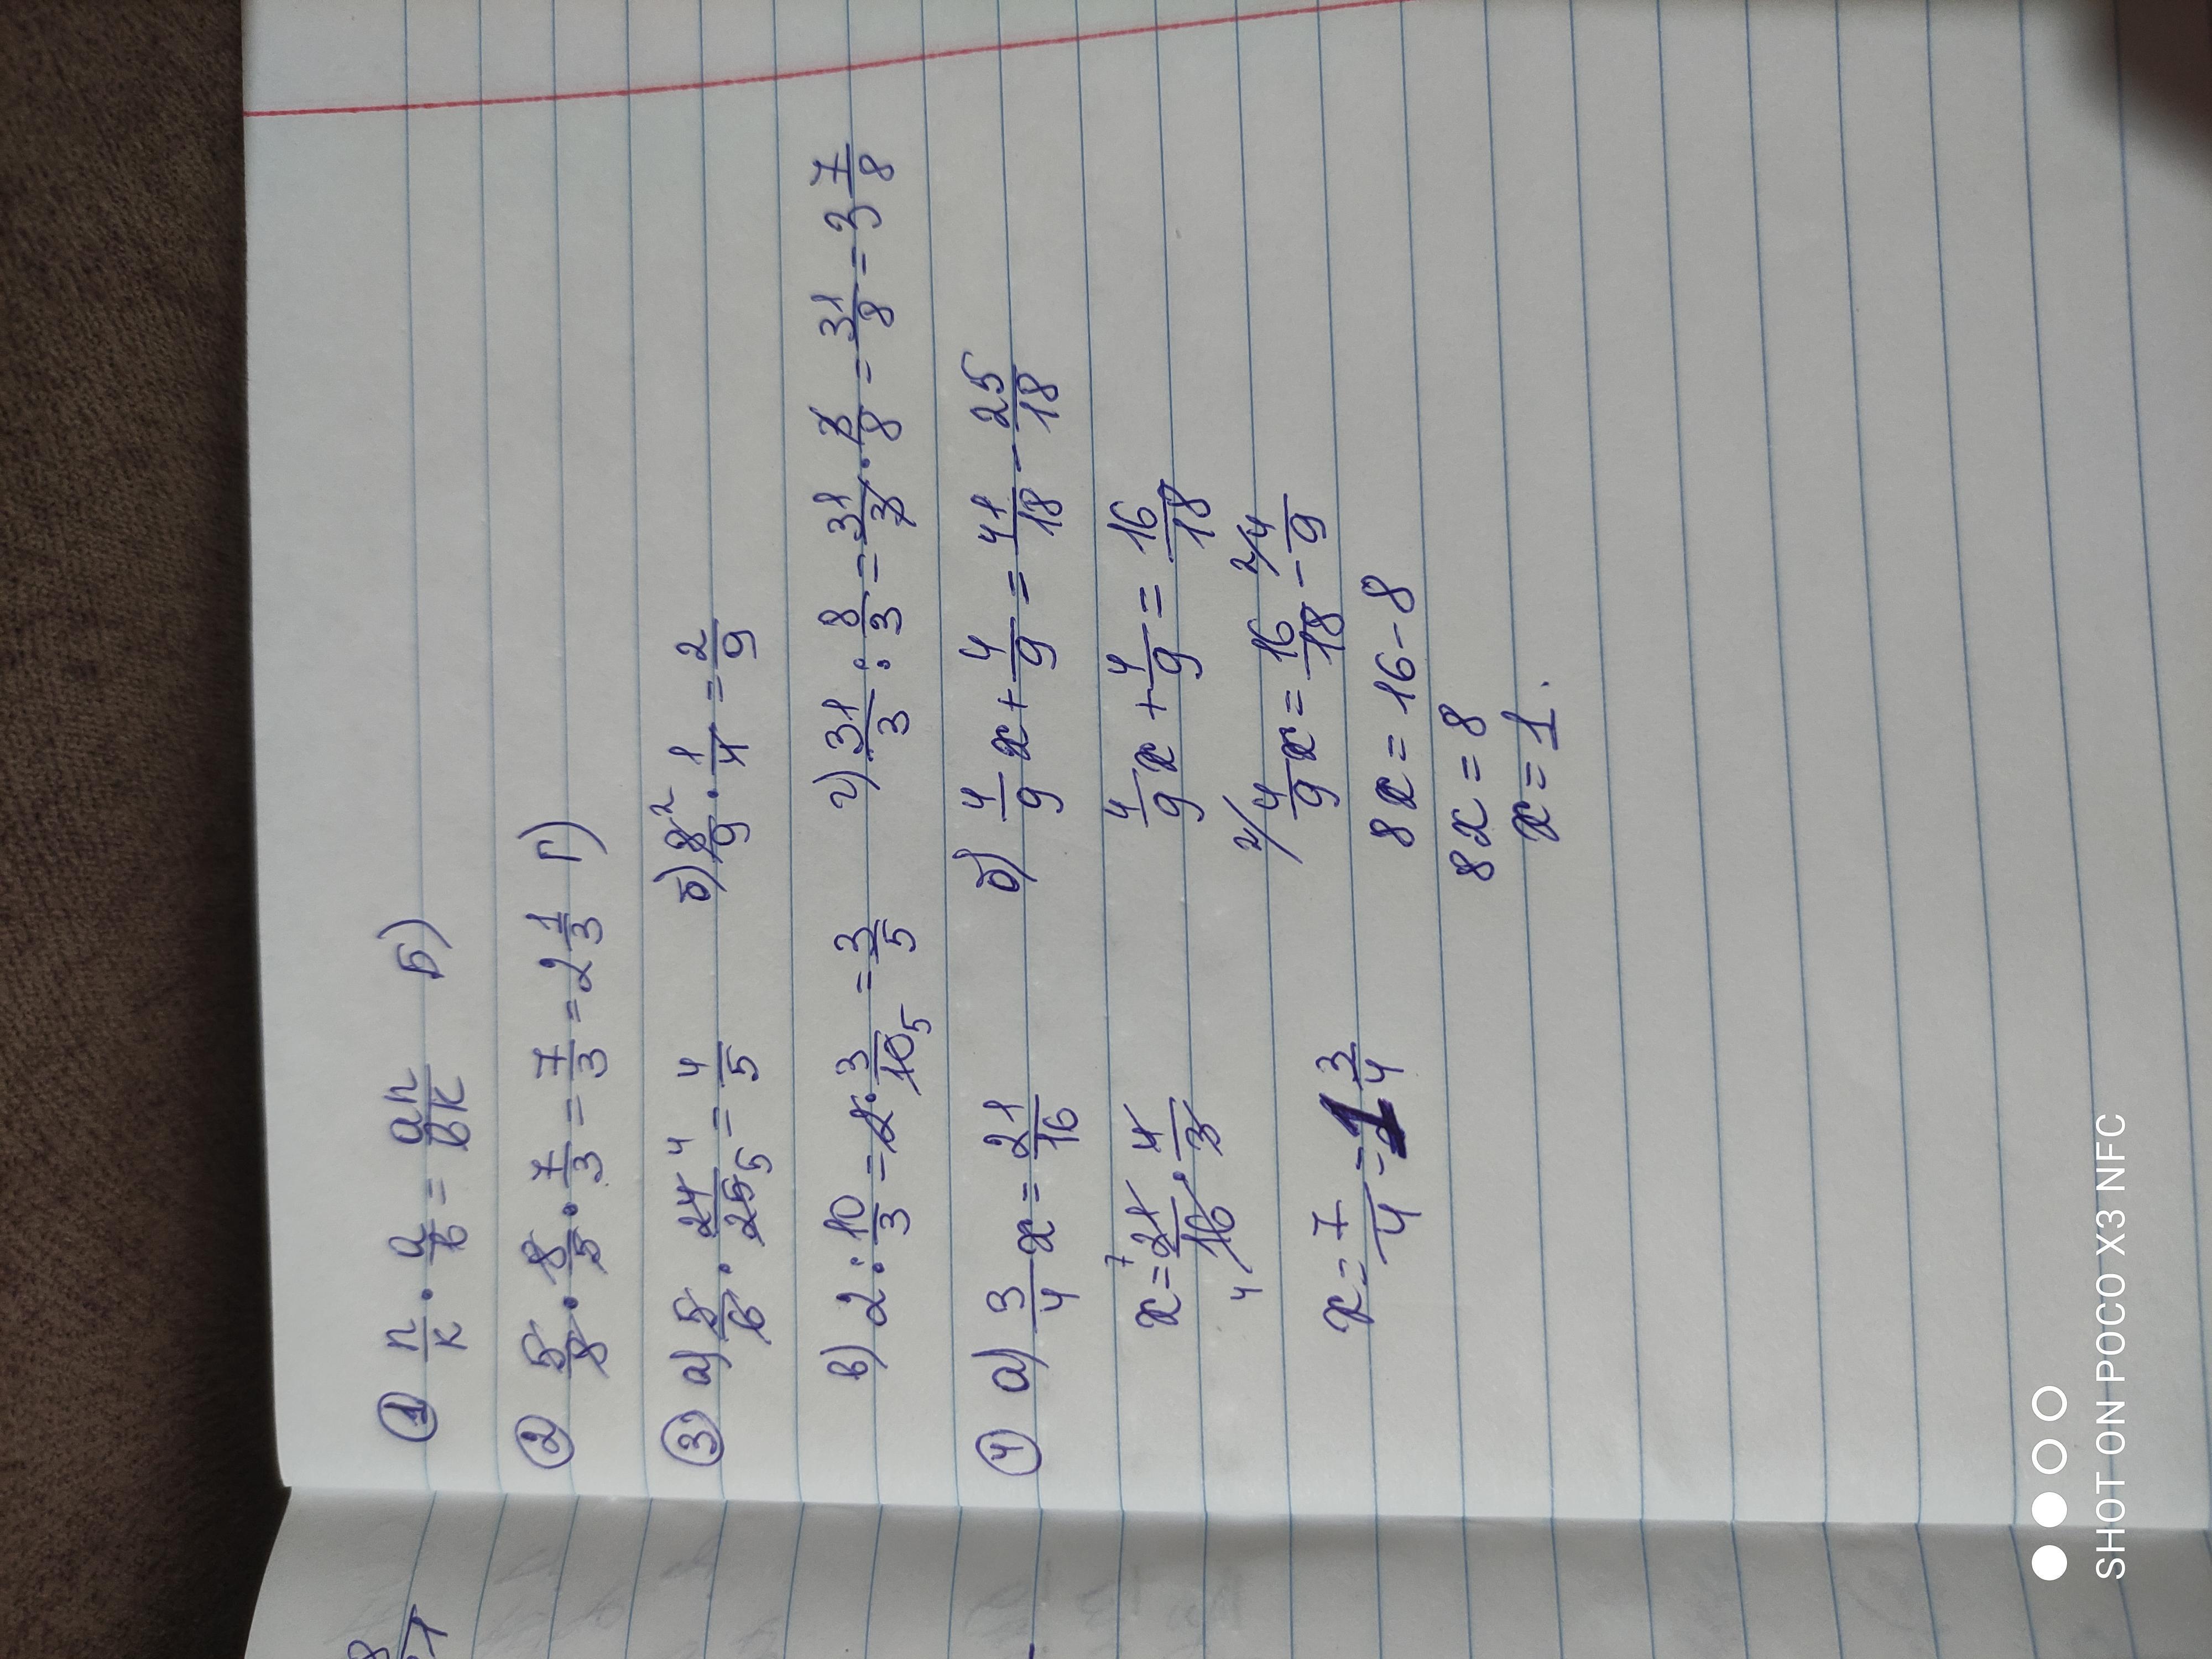 ① n/к · a/в = an/вк б)
② 5/8 · 8/5 · 7/3 = 7/3 = 2 1/3 г)
③ а) 5/6 · 24/25 4 5 = 4/5 б) 8/9 2 · 1/4 = 2/9
в) 2 : 10/3 = 2 · 3/10 5 = 3/5 г) 31/3 : 8/3 = 31/3 · 3/8 = 31/8 = 3 7/8
④ а) 3/4 x = 21/16 б) 4/9 x + 4/9 = 41/18 - 25/18
x = 7 21/16 4 · 4/3 4/9 x + 4/9 = 16/18
2/ 4/9 x = 16/18 - 2/ 4/9
x = 7/4 = 1 3/4 8x = 16 - 8
8x = 8
x = 1.
SHOT ON POCO X3 NFC